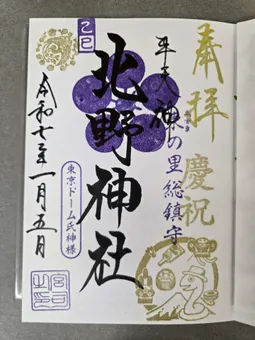 奉拝 慶祝
牛天神
の里総鎮守
乙巳
北野神社
東京ドーム氏神様
令和七年一月五日
宮司之印